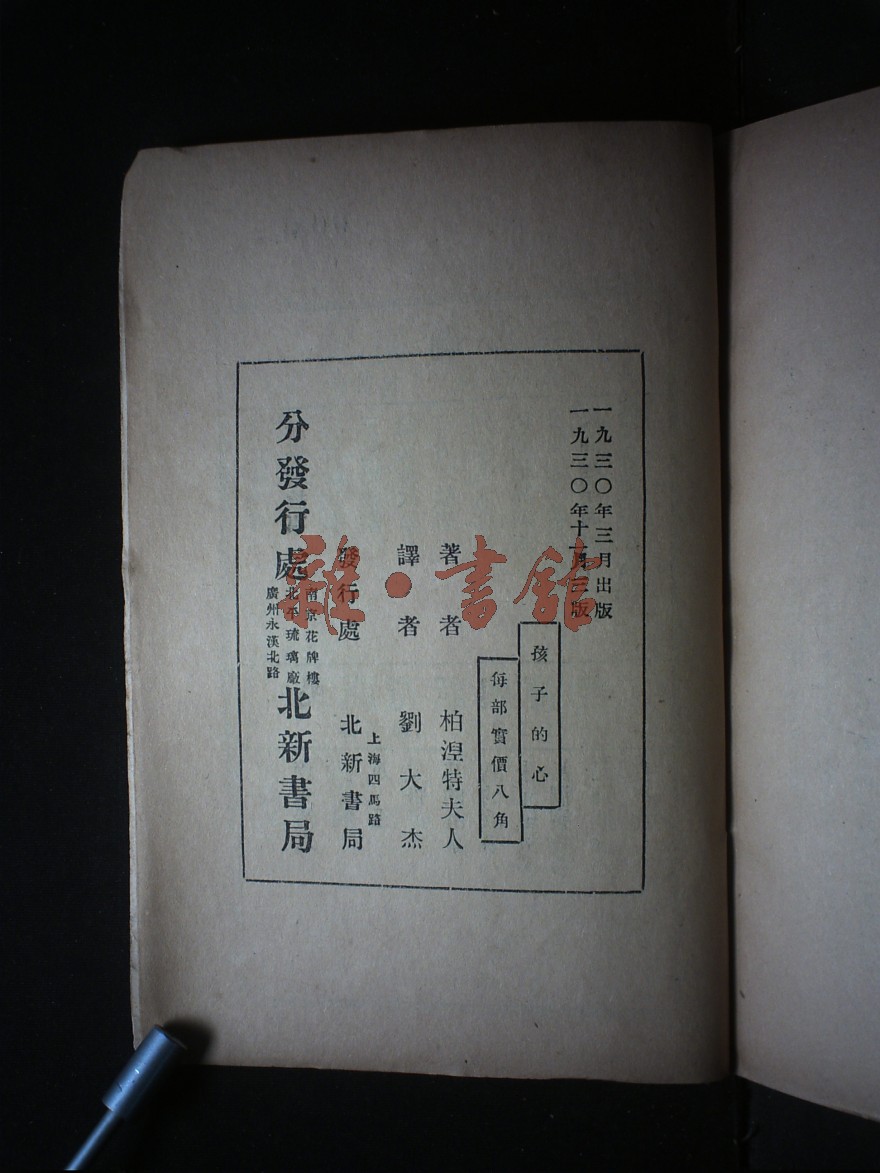 一九三〇年三月出版
一九三〇年十一月三版
孩子的心
每部實價八角
著者 柏涅特夫人
譯者 劉大杰
上海四馬路
發行處 北新書局
南京花牌樓
北平琉璃廠
廣州永漢北路
分發行處 北新書局
雜·書館